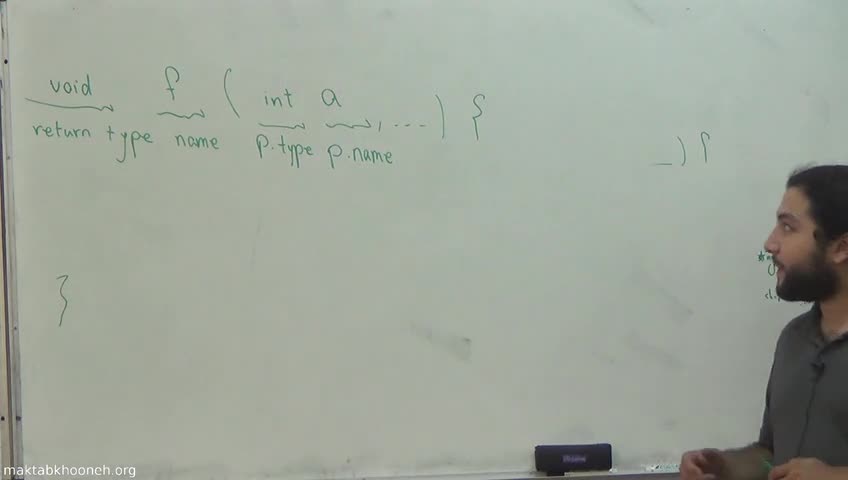 void f ( int a , ... ) {
return type name p.type p.name
_ ) {
}
maktabkhooneh.org